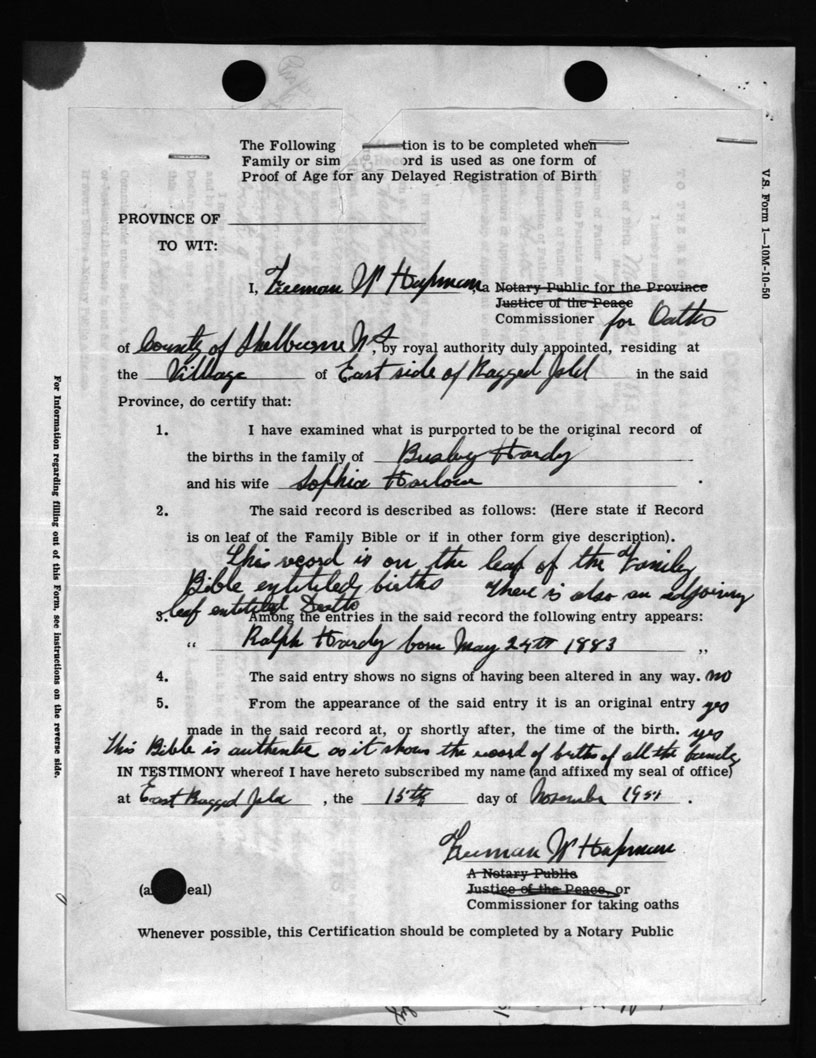 The Following tion is to be completed when
Family or sim ord is used as one form of
Proof of Age for any Delayed Registration of Birth
V.S. Form 1—10M-10-50
PROVINCE OF
TO WIT:
I, Freeman W Hapman, a Notary Public for the Province
Justice of the Peace
Commissioner for Oaths
of County of Shelburne N S, by royal authority duly appointed, residing at
the Village of East side of Ragged Isld in the said
Province, do certify that:
1. I have examined what is purported to be the original record of
the births in the family of Busby Hardy
and his wife Sophia Harlow .
2. The said record is described as follows: (Here state if Record
is on leaf of the Family Bible or if in other form give description).
This record is on the leaf of the Family
Bible entitled births There is also an adjoining
leaf entitled Deaths
3. Among the entries in the said record the following entry appears:
“ Ralph Hardy born May 24th 1883 ”
4. The said entry shows no signs of having been altered in any way. no
5. From the appearance of the said entry it is an original entry yes
made in the said record at, or shortly after, the time of the birth. yes
This Bible is authentic as it shows the record of births of all the family
IN TESTIMONY whereof I have hereto subscribed my name (and affixed my seal of office)
at East Ragged Isld, the 15th day of November 1951.
Freeman W Hapman
A Notary Public
Justice of the Peace, or
Commissioner for taking oaths
(a eal)
Whenever possible, this Certification should be completed by a Notary Public
For Information regarding filling out of this Form, see instructions on the reverse side.